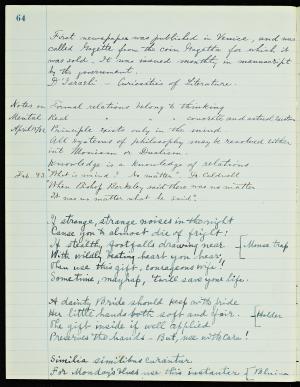 64
First newspaper was published in Venice, and was
called Gazette from the coin Gazetta for which it
was sold. It was issued monthly in manuscript
by the government.
D'Israeli - Curiosities of Literature.
Notes on Formal relations belong to thinking
Mental Real " " " concrete and actual
April 17/82 Principle exists only in the mind
All systems of philosophy may be resolved either
into Monism or Dualism.
Knowledge is a knowledge of relations
Feb. 93 What is mind? No matter. Dr Caldwell
"When Bishop Berkeley said there was no matter
It was no matter what he said".
If strange, strange noises in the night
Cause you to almost die of fright!
If stealthy footfalls drawing near
With wildly beating heart you hear, Mouse trap
Then use this gift, courageous wife!
Sometime, mayhap, 'twill save your life.
A dainty Bride should keep with pride
Her little hands both soft and fair. Holder
The gift inside if well applied
Preserves the hands - But, use with care!
Similia similibus curantur
For Monday's blues use this instanter